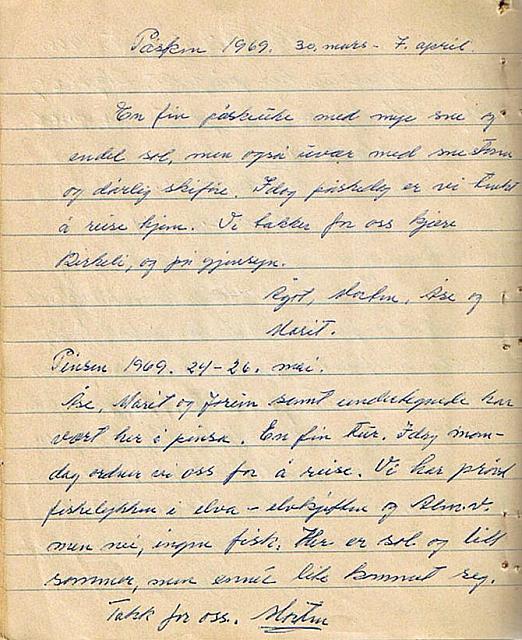 Påsken 1969. 30. mars - 7. april.
En fin påskeuke med mye snø og
endel sol, men også uvær med snøstorm
og dårlig skiføre. Idag påskedag er vi tenkt
å reise hjem. Vi takker for oss kjære
Birkeli, og på gjensyn.
Ågot, Morten, Åse og
Marit.
Pinsen 1969. 24-26. mai.
Åse, Marit og Jorun samt undertegnede har
vært her i pinsa. En fin tur. Idag man-
dag ordner vi oss for å reise. Vi har prøvd
fiskelykken i elva - elvkjeften og Alm.v.
men nei, ingen fisk. Her er sol og litt
sommer, men ennå lite kommet seg.
Takk for oss. Morten